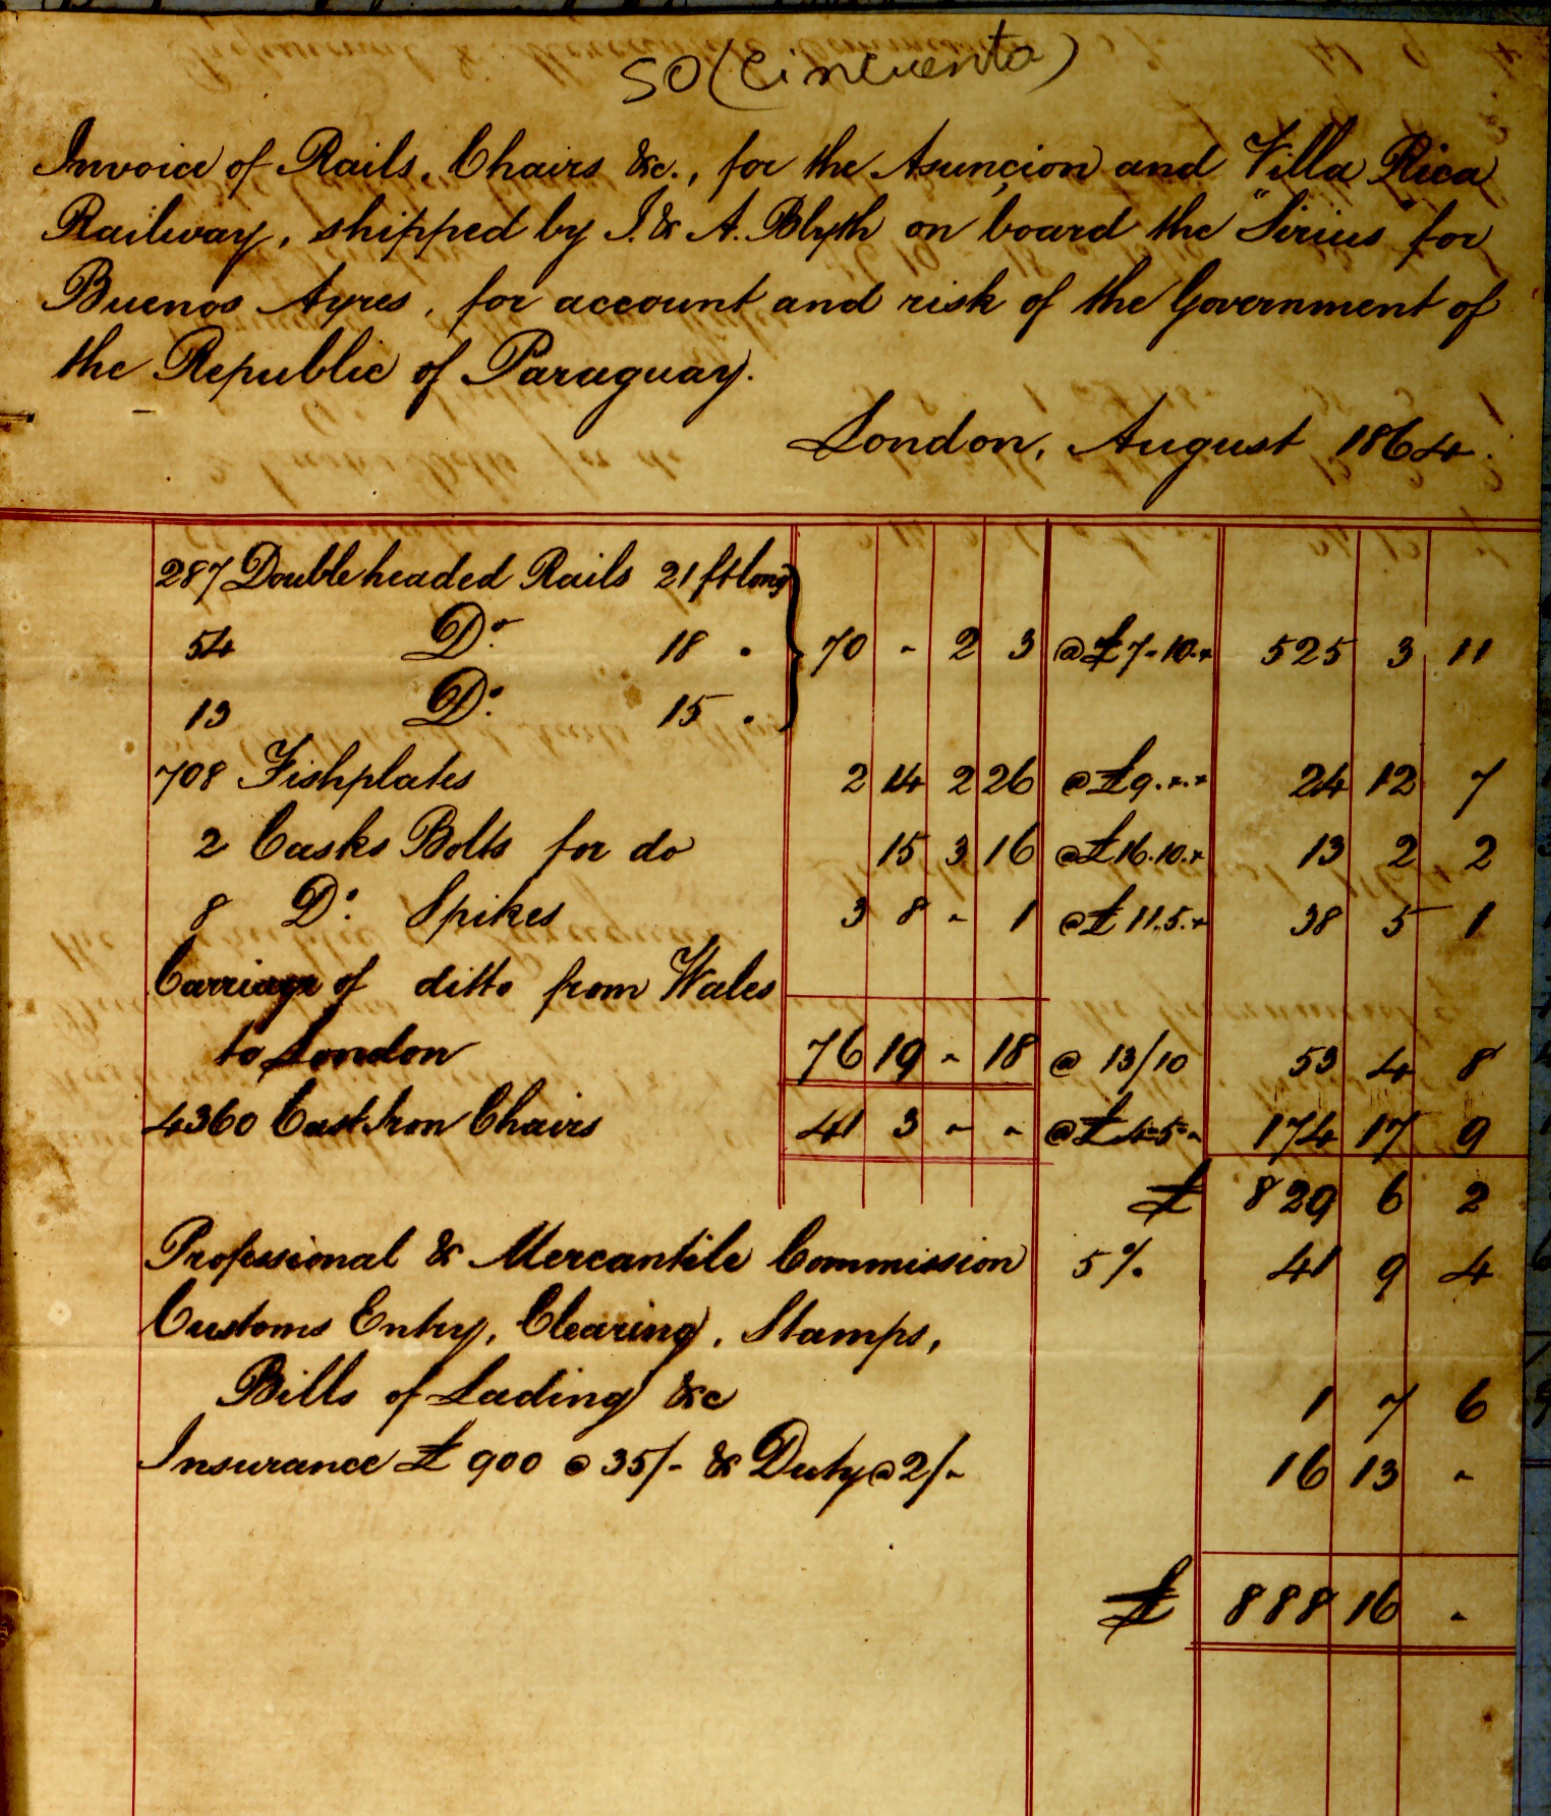 50 (cincuenta)
Invoice of Rails, Chairs &c., for the Asunçion and Villa Rica
Railway, shipped by J. & A. Blyth on board the "Sirius" for
Buenos Ayres, for account and risk of the Government of
the Republic of Paraguay.
London, August 1864.
287 Double headed Rails 21 ft long
54 Do. 18 " 70 - 2 3 @ £7-10-" 525 3 11
13 Do. 15 "
708 Fishplates 2 14 2 26 @ £9.".". 24 12 7
2 Casks Bolts for do 15 3 16 @ £16.10." 13 2 2
8 Do. Spikes 3 8 - 1 @ £11.5." 38 5 1
Carriage of ditto from Wales
to London 76 19 - 18 @ 13/10 53 4 8
4360 Cast Iron Chairs 41 3 - - @ £4-5- 174 17 9
£ 829 6 2
Professional & Mercantile Commission 5% 41 9 4
Customs Entry, Clearing, Stamps,
Bills of Lading &c 1 7 6
Insurance £900 @ 35/- & Duty @ 2/- 16 13 -
£ 888 16 -